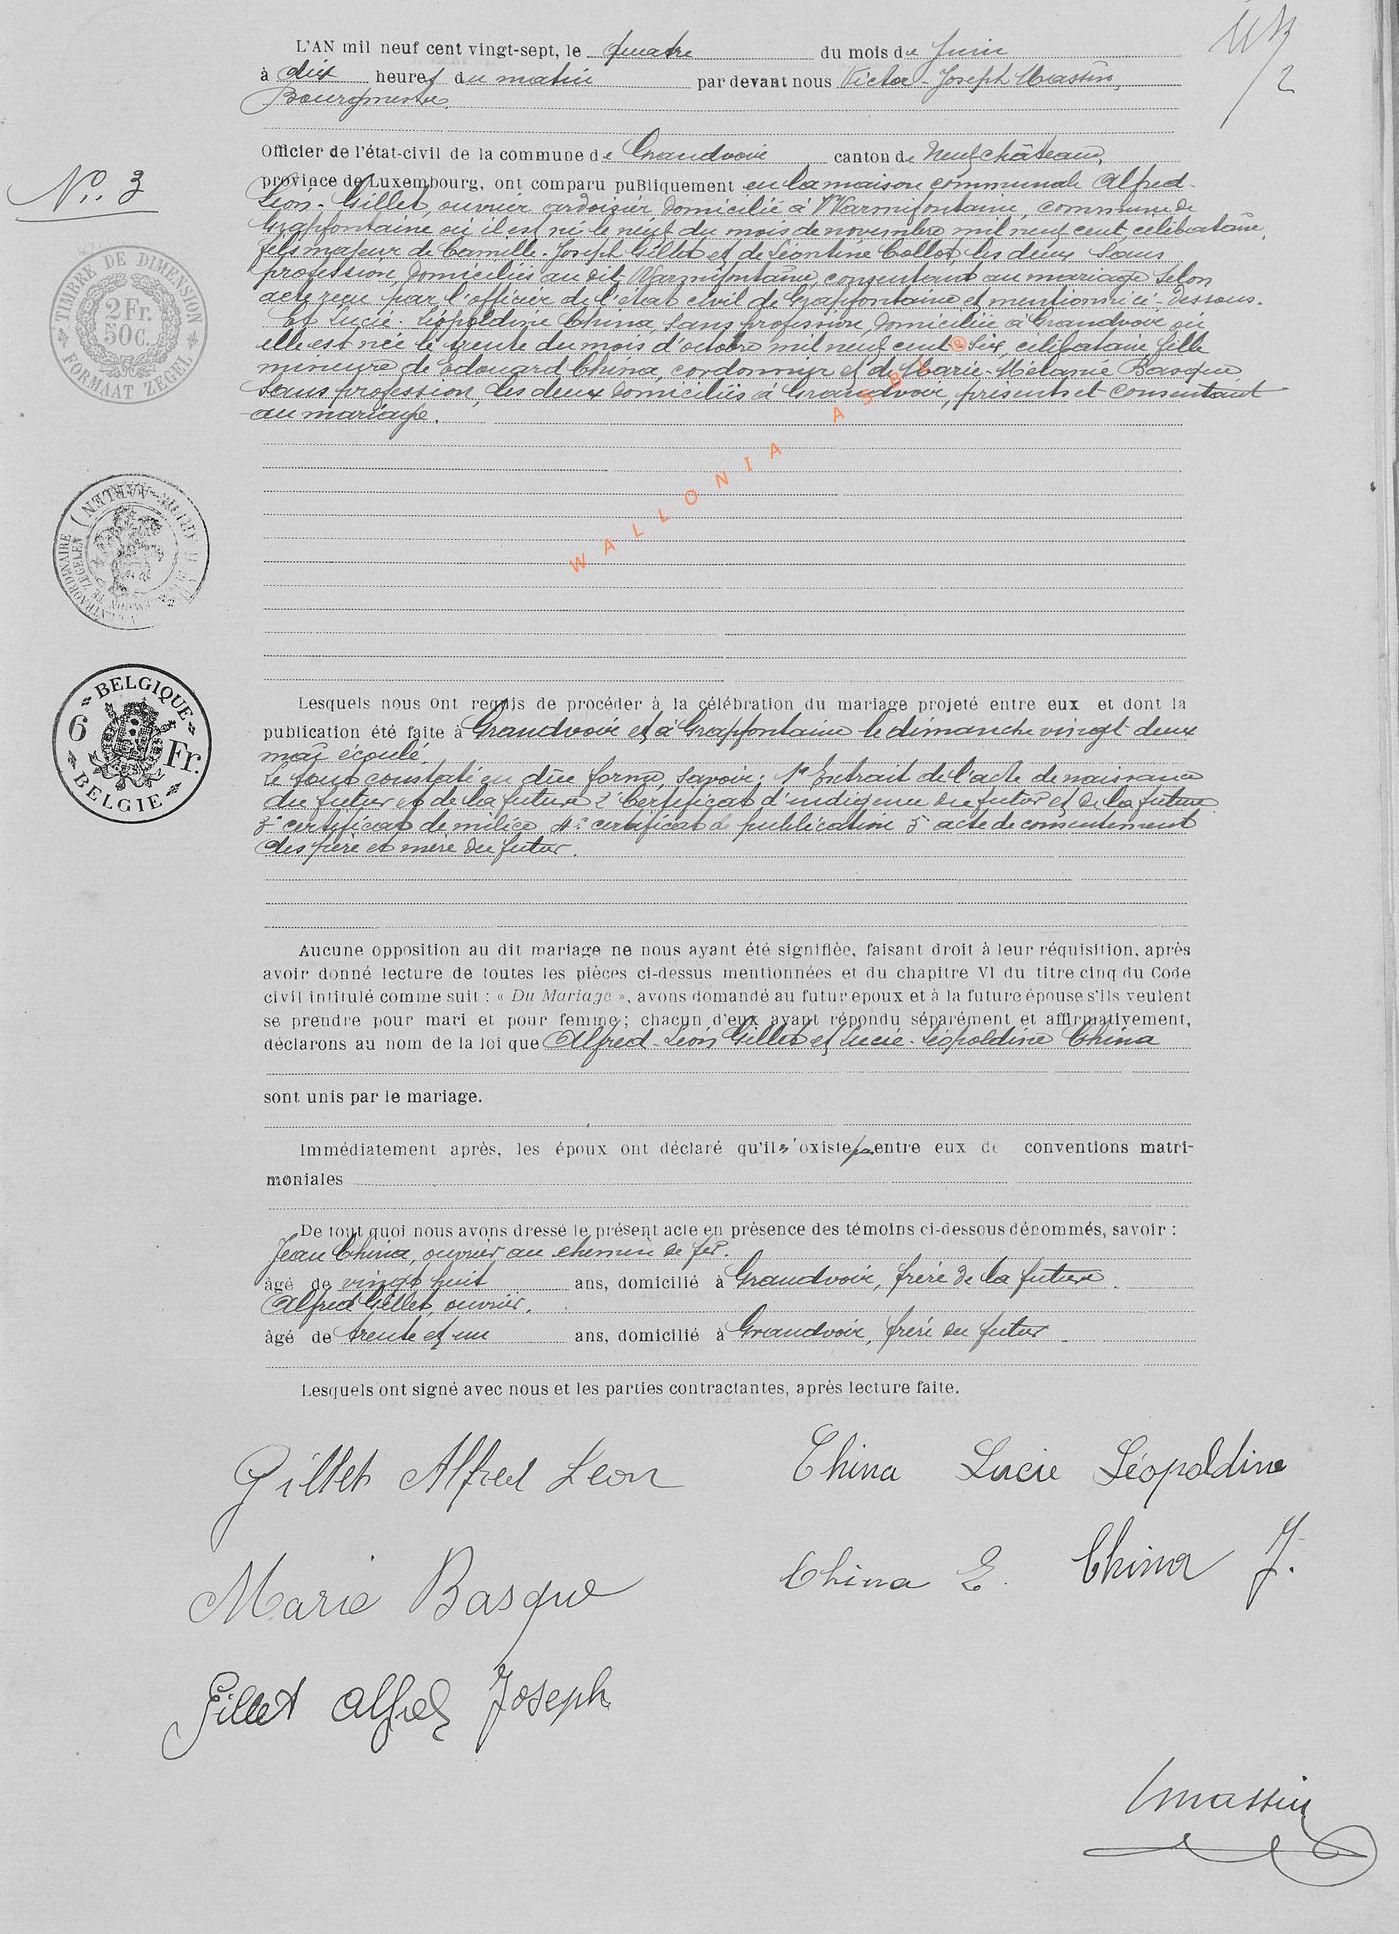 L'AN mil neuf cent vingt-sept, le quatre du mois de Juin
à dix heures du matin par devant nous Victor-Joseph Massin,
Bourgmestre
Officier de l'état-civil de la commune de Grandvoir canton de Neufchâteau,
province de Luxembourg, ont comparu puBliquement en la maison communale Alfred-
Léon-Gillet, ouvrier ardoisier, domicilié à Warmifontaine, commune de
Grapfontaine où il est né le neuf du mois de novembre mil neuf cent, célibataire,
fils majeur de Camille-Joseph Gillet et de Léontine Collot les deux sans
profession, domiciliés au dit Warmifontaine, consentant au mariage selon
acte reçu par l'officier de l'état civil de Grapfontaine et mentionné ci-dessous.
Et Lucie-Léopoldine China, sans profession, domiciliée à Grandvoir où
elle est née le trente du mois d'octobre mil neuf cent six, célibataire fille
mineure de Edouard China, cordonnier et de Marie-Mélanie Basque
sans profession, les deux domiciliés à Grandvoir, présents et consentant
au mariage.
WALLONIA ASBL ®
N° 3
TIMBRE DE DIMENSION
2 Fr.
50c.
FORMAAT ZEGEL
BELGIQUE
6 Fr.
BELGIE
Lesquels nous ont requis de procéder à la célébration du mariage projeté entre eux et dont la
publication été faite à Grandvoir et à Grapfontaine le dimanche vingt deux
mai écoulé.
Le tout constaté en due forme, savoir: 1° Extrait de l'acte de naissance
du futur et de la future 2° Certificat d'indigence du futur et de la future
3° certificat de milice 4° certificat de publication 5° acte de consentement
des père et mère du futur.
Aucune opposition au dit mariage ne nous ayant été signifiée, faisant droit à leur réquisition, après
avoir donné lecture de toutes les pièces ci-dessus mentionnées et du chapitre VI du titre cinq du Code
civil intitulé comme suit : « Du Mariage », avons demandé au futur epoux et à la future épouse s'ils veulent
se prendre pour mari et pour femme ; chacun d'eux ayant répondu séparément et affirmativement,
déclarons au nom de la loi que Alfred-Léon Gillet et Lucie-Léopoldine China
sont unis par le mariage.
Immédiatement après, les époux ont déclaré qu'il n'existe pas entre eux de conventions matri-
moniales
De tout quoi nous avons dressé le présent acte en présence des témoins ci-dessous dénommés, savoir :
Jean China, ouvrier au chemin de fer.
âgé de vingt huit ans, domicilié à Grandvoir, frère de la future.
Alfred Gillet, ouvrier.
âgé de trente et un ans, domicilié à Grandvoir, frère du futur
Lesquels ont signé avec nous et les parties contractantes, après lecture faite.
Gillet Alfred Leon China Lucie Léopoldine
Marie Basque China E. China J.
Gillet Alfred Joseph
Vmassin